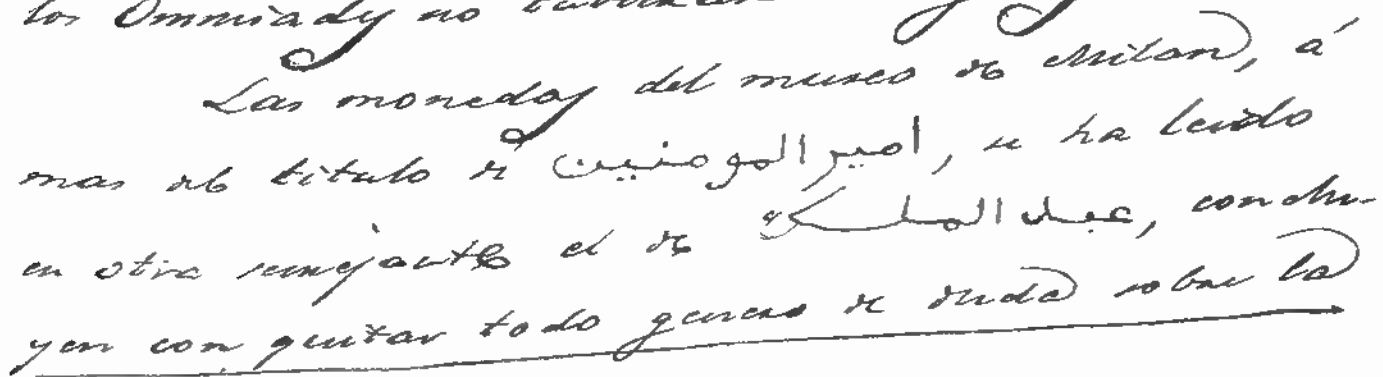 los Ommiadas no
Las monedas del museo de Milan, á
mas del titulo de امير المومنين, se ha leido
en otra semejante el de عبد الملك, conclu-
yen con quitar todo genero de duda sobre la